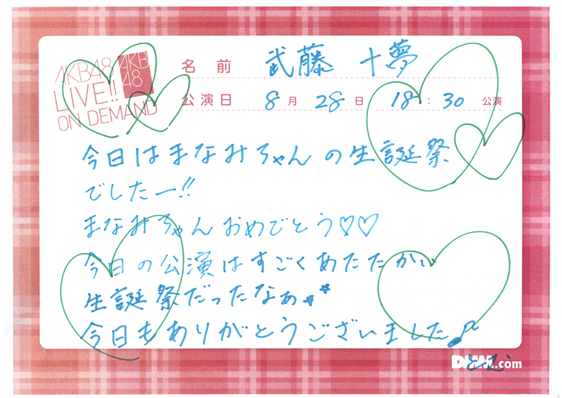 AKB48
LIVE!!
ON DEMAND
AKB
48
名前 武藤 十夢
公演日 8月28日 18:30 公演
今日はまなみちゃんの生誕祭
でしたー!!
まなみちゃんおめでとう♡♡
今日の公演はすごくあたたかい
生誕祭だったなぁ★★
今日もありがとうございました♪
とむ
DMM.com